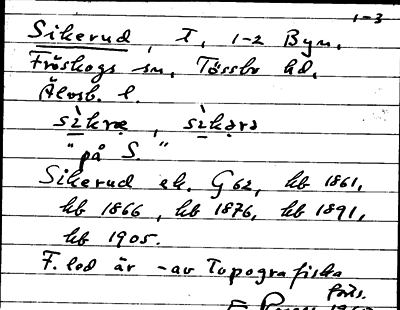 1-3
Sikerud, T, 1-2 Byn.
Fröskogs sn, Tössbo hd,
Älvsb. l.
sìkræ, sìkərə
"på S."
Sikerud ek. G62, kb 1861,
kb 1866, kb 1876, kb 1891,
kb 1905.
F. led är -av Topografiska
förts.